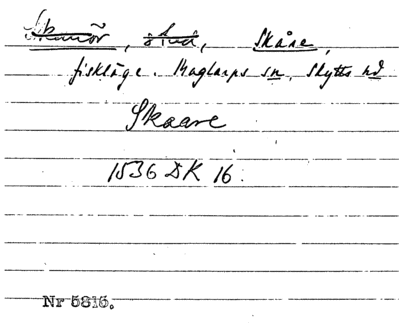 Skanör, stad, Skåne,
fiskläge. Maglarps sn, Skytts hd
Skaare
1536 DK 16.
Nr 5816.